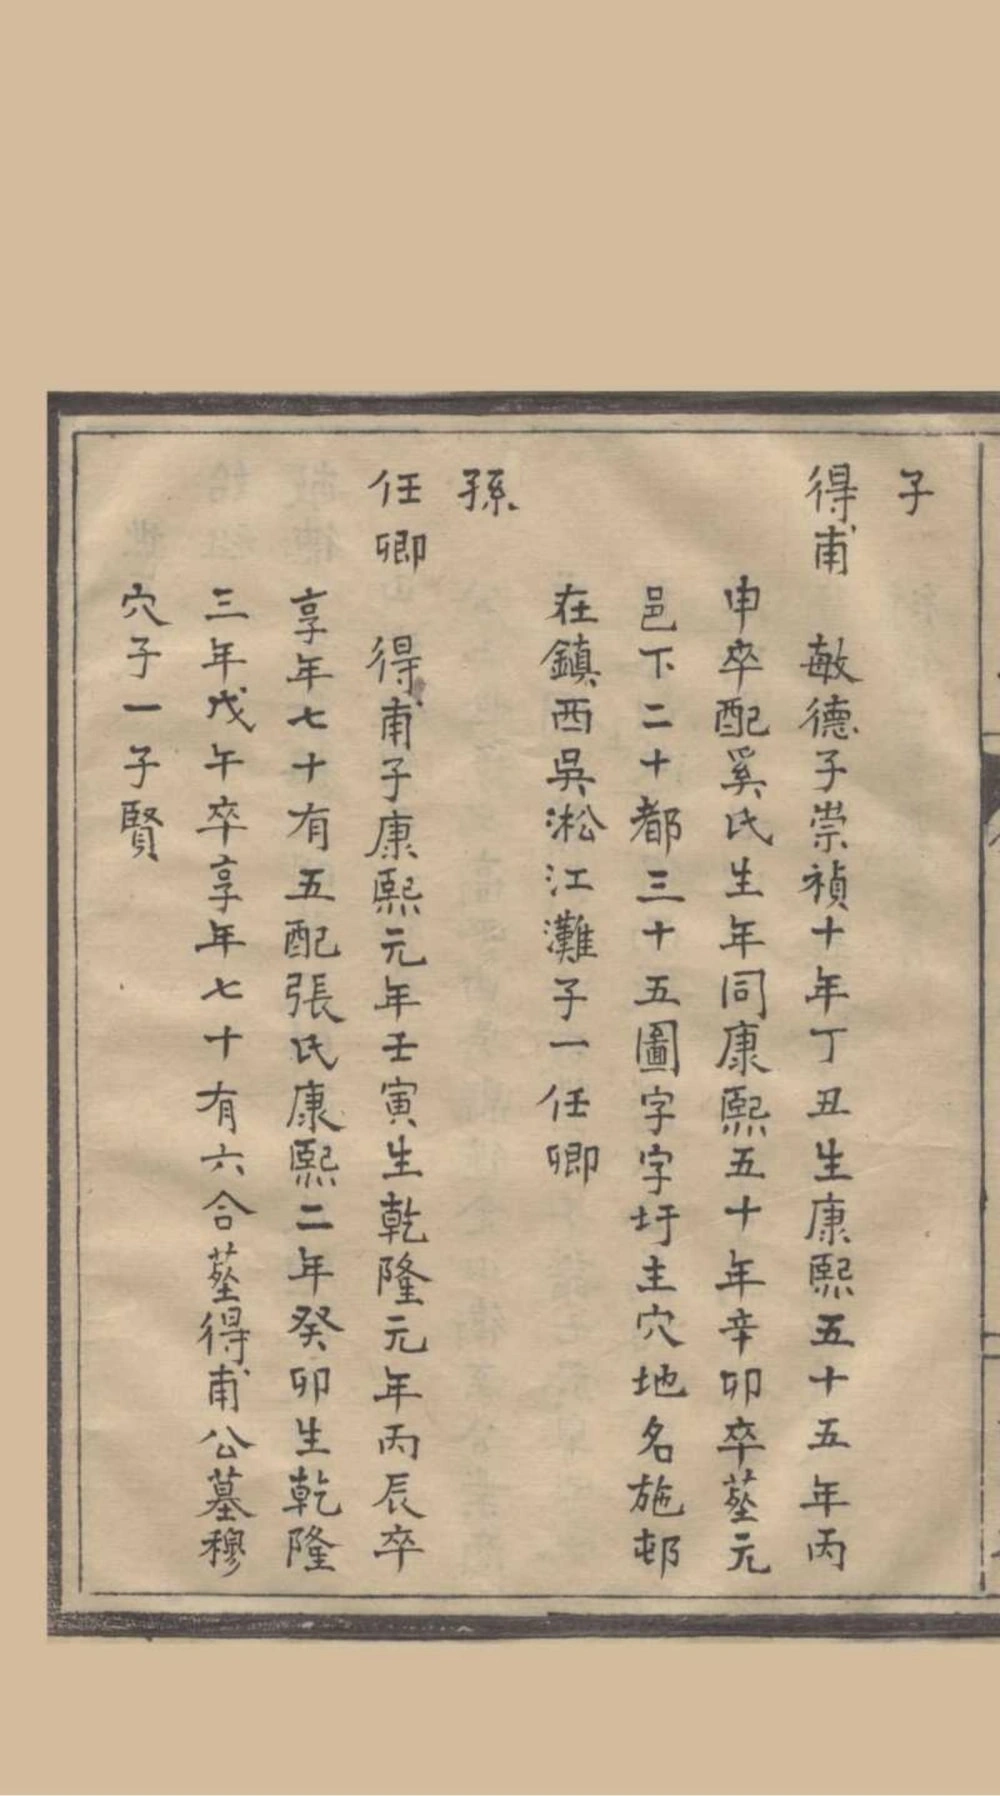 子
得甫　敏德子崇禎十年丁丑生康熙五十五年丙
申卒配奚氏生年同康熙五十年辛卯卒塟元
邑下二十都三十五圖字字圩主穴地名施邨
在鎮西吳淞江灘子一任卿
孫
任卿　得甫子康熙元年壬寅生乾隆元年丙辰卒
享年七十有五配張氏康熙二年癸卯生乾隆
三年戊午卒享年七十有六合塟得甫公墓穆
穴子一子賢